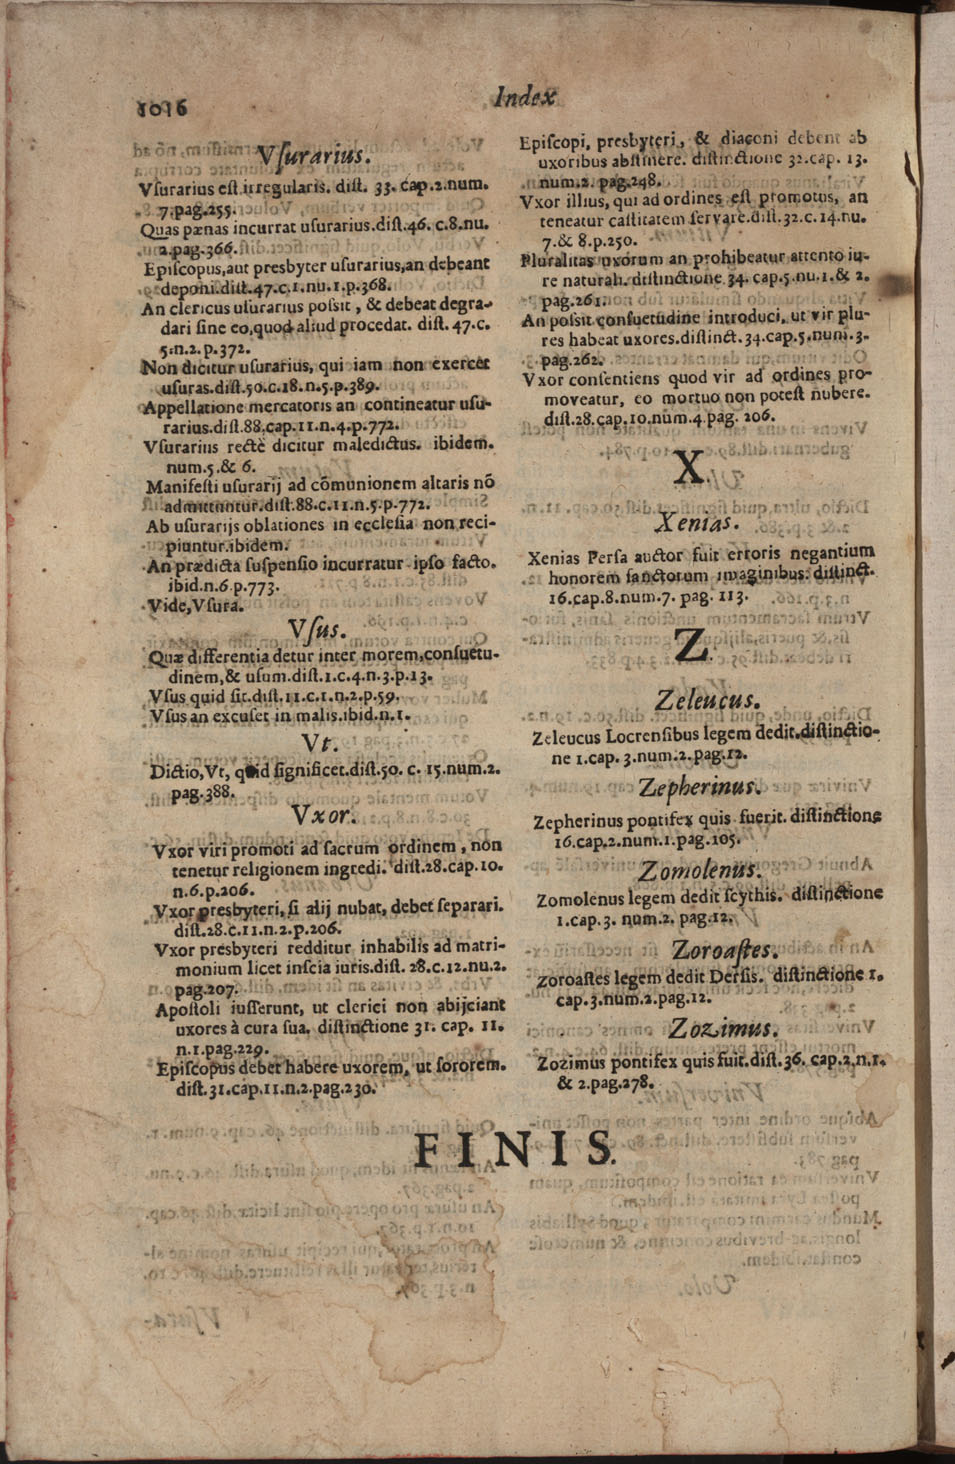 1016
Index
Vſurarius.
Vſurarius eſt irregularis. diſt. 33. cap.2.num.
7.pag.255.
Quas pænas incurrat uſurarius.diſt.46. c.8.nu.
2.pag.366.
Epiſcopus,aut presbyter uſurarius,an debeant
deponi.diſt.47.c.1.nu.1.p.368.
An clericus uſurarius poſsit, & debeat degra-
dari ſine eo,quod aliud procedat. diſt. 47.c.
5.n.2.p.372.
Non dicitur uſurarius, qui iam non exercet
uſuras.diſt.50.c.18.n.5.p.389.
Appellatione mercatoris an contineatur uſu-
rarius.diſt.88.cap.11.n.4.p.772.
Vſurarius rectè dicitur maledictus. ibidem.
num.5.& 6.
Manifeſti uſurarij ad cōmunionem altaris nō
admittuntur.diſt.88.c.11.n.5.p.772.
Ab uſurarijs oblationes in eccleſia non reci-
piuntur.ibidem.
An prædicta ſuſpenſio incurratur ipſo facto.
ibid.n.6.p.773.
Vide,Vſura.
Vſus.
Quæ differentia detur inter morem,conſuetu-
dinem,& uſum.diſt.1.c.4.n.3.p.13.
Vſus quid ſit.diſt.11.c.1.n.2.p.59.
Vſus an excuſet in malis.ibid.n.1.
Vt.
Dictio,Vt, quid ſignificet.diſt.50. c. 15.num.2.
pag.388.
Vxor.
Vxor viri promoti ad ſacrum ordinem, non
tenetur religionem ingredi. diſt.28.cap.10.
n.6.p.206.
Vxor presbyteri, ſi alij nubat, debet ſeparari.
diſt.28.c.11.n.2.p.206.
Vxor presbyteri redditur inhabilis ad matri-
monium licet inſcia iuris.diſt. 28.c.12.nu.2.
pag.207.
Apoſtoli iuſſerunt, ut clerici non abijciant
uxores à cura ſua. diſtinctione 31. cap. 11.
n.1.pag.229.
Epiſcopus debet habere uxorem, ut ſororem.
diſt.31.cap.11.n.2.pag.230.
Epiſcopi, presbyteri, & diaconi debent ab
uxoribus abſtinere. diſtinctione 32.cap. 13.
num.2. pag.248.
Vxor illius, qui ad ordines eſt promotus, an
teneatur caſtitatem ſervare.diſt.32.c.14.nu.
7.& 8.p.250.
Pluralitas uxorum an prohibeatur attento iu-
re naturali. diſtinctione 34. cap.5.nu.1.& 2.
pag.261.
An poſsit conſuetudine introduci, ut vir plu-
res habeat uxores.diſtinct.34.cap.5.num.3.
pag.262.
Vxor conſentiens quod vir ad ordines pro-
moveatur, eo mortuo non poteſt nubere.
diſt.28.cap.10.num.4.pag. 206.
X.
Xenias.
Xenias Perſa auctor fuit erroris negantium
honorem ſanctorum imaginibus. diſtinct.
16.cap.8.num.7. pag. 113.
Z.
Zeleucus.
Zeleucus Locrenſibus legem dedit.diſtinctio-
ne 1.cap. 3.num.2.pag.12.
Zepherinus.
Zepherinus pontifex quis fuerit. diſtinctione
16.cap.2.num.1.pag.105.
Zomolenus.
Zomolenus legem dedit ſcythis. diſtinctione
1.cap.3. num.2. pag.12.
Zoroaſtes.
Zoroaſtes legem dedit Perſis. diſtinctione 1.
cap.3.num.2.pag.12.
Zozimus.
Zozimus pontifex quis fuit.diſt.36. cap.2.n.1.
& 2.pag.278.
FINIS.